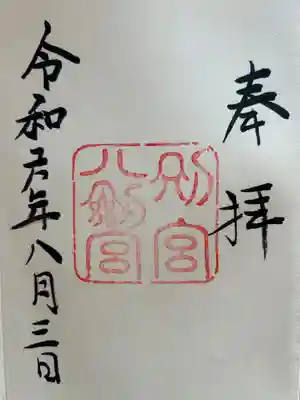 奉拝
別宮
八剱宮
令和六年八月三日